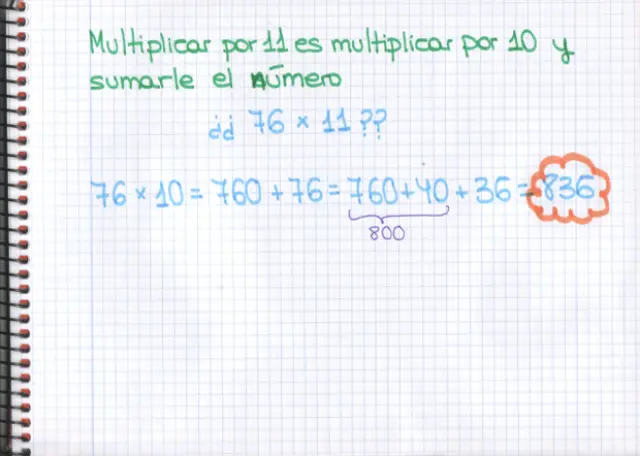 Multiplicar por 11 es multiplicar por 10 y
sumarle el número
¿¿ 76 × 11 ??
76 × 10 = 760 + 76 = 760 + 40 + 36 = 836
800